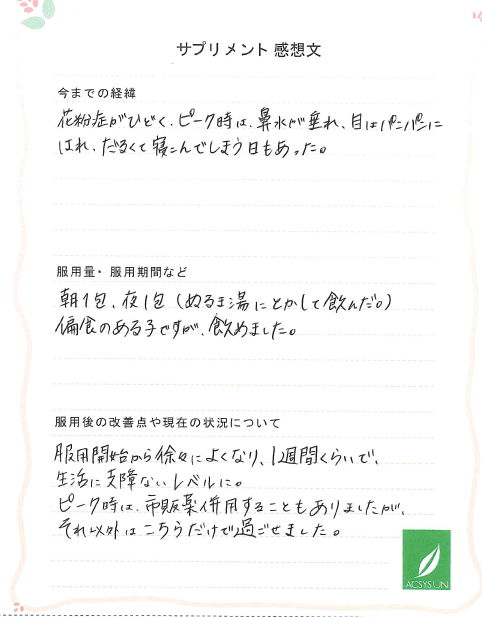 サプリメント 感想文
今までの経緯
花粉症がひどく、ピーク時は、鼻水が垂れ、目はパンパンに
はれ、だるくて寝こんでしまう日もあった。
服用量・服用期間など
朝1包、夜1包(ぬるま湯にとかして飲んだ。)
偏食のある子ですが、飲めました。
服用後の改善点や現在の状況について
服用開始から徐々によくなり、1週間くらいで、
生活に支障ないレベルに。
ピーク時は、市販薬併用することもありましたが、
それ以外はこちらだけで過ごせました。
ACSYSUN